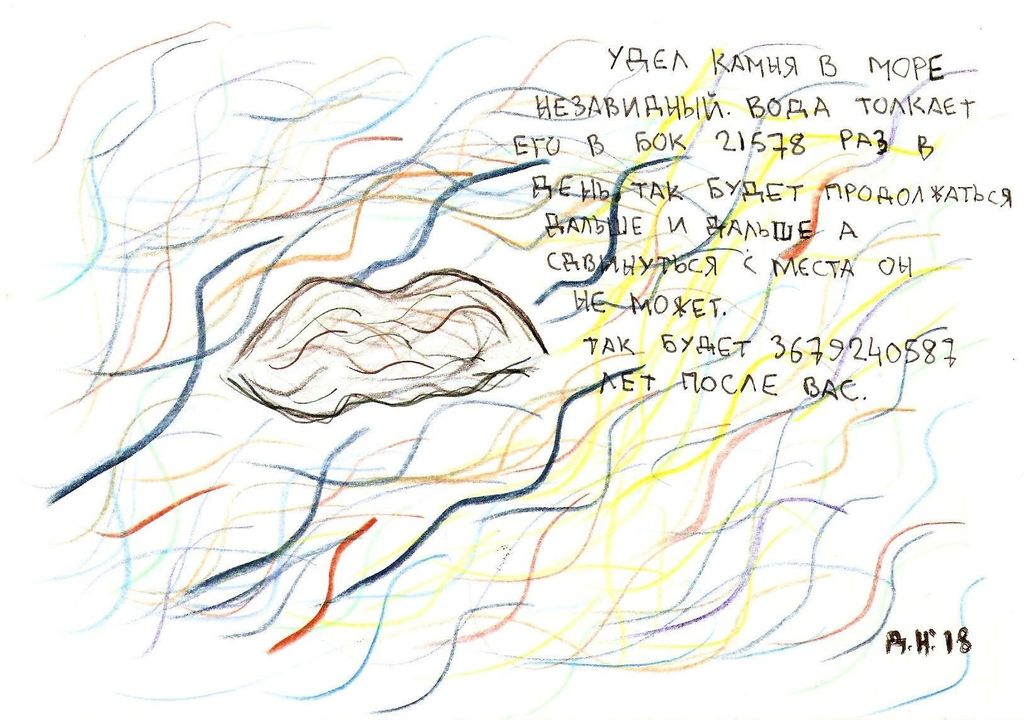 УДЕЛ КАМНЯ В МОРЕ
НЕЗАВИДНЫЙ. ВОДА ТОЛКАЕТ
ЕГО В БОК 21578 РАЗ В
ДЕНЬ ТАК БУДЕТ ПРОДОЛЖАТЬСЯ
ДАЛЬШЕ И ДАЛЬШЕ А
СДВИНУТЬСЯ С МЕСТА ОН
НЕ МОЖЕТ.
ТАК БУДЕТ 3679240587
ЛЕТ ПОСЛЕ ВАС.
Д.Н.'18